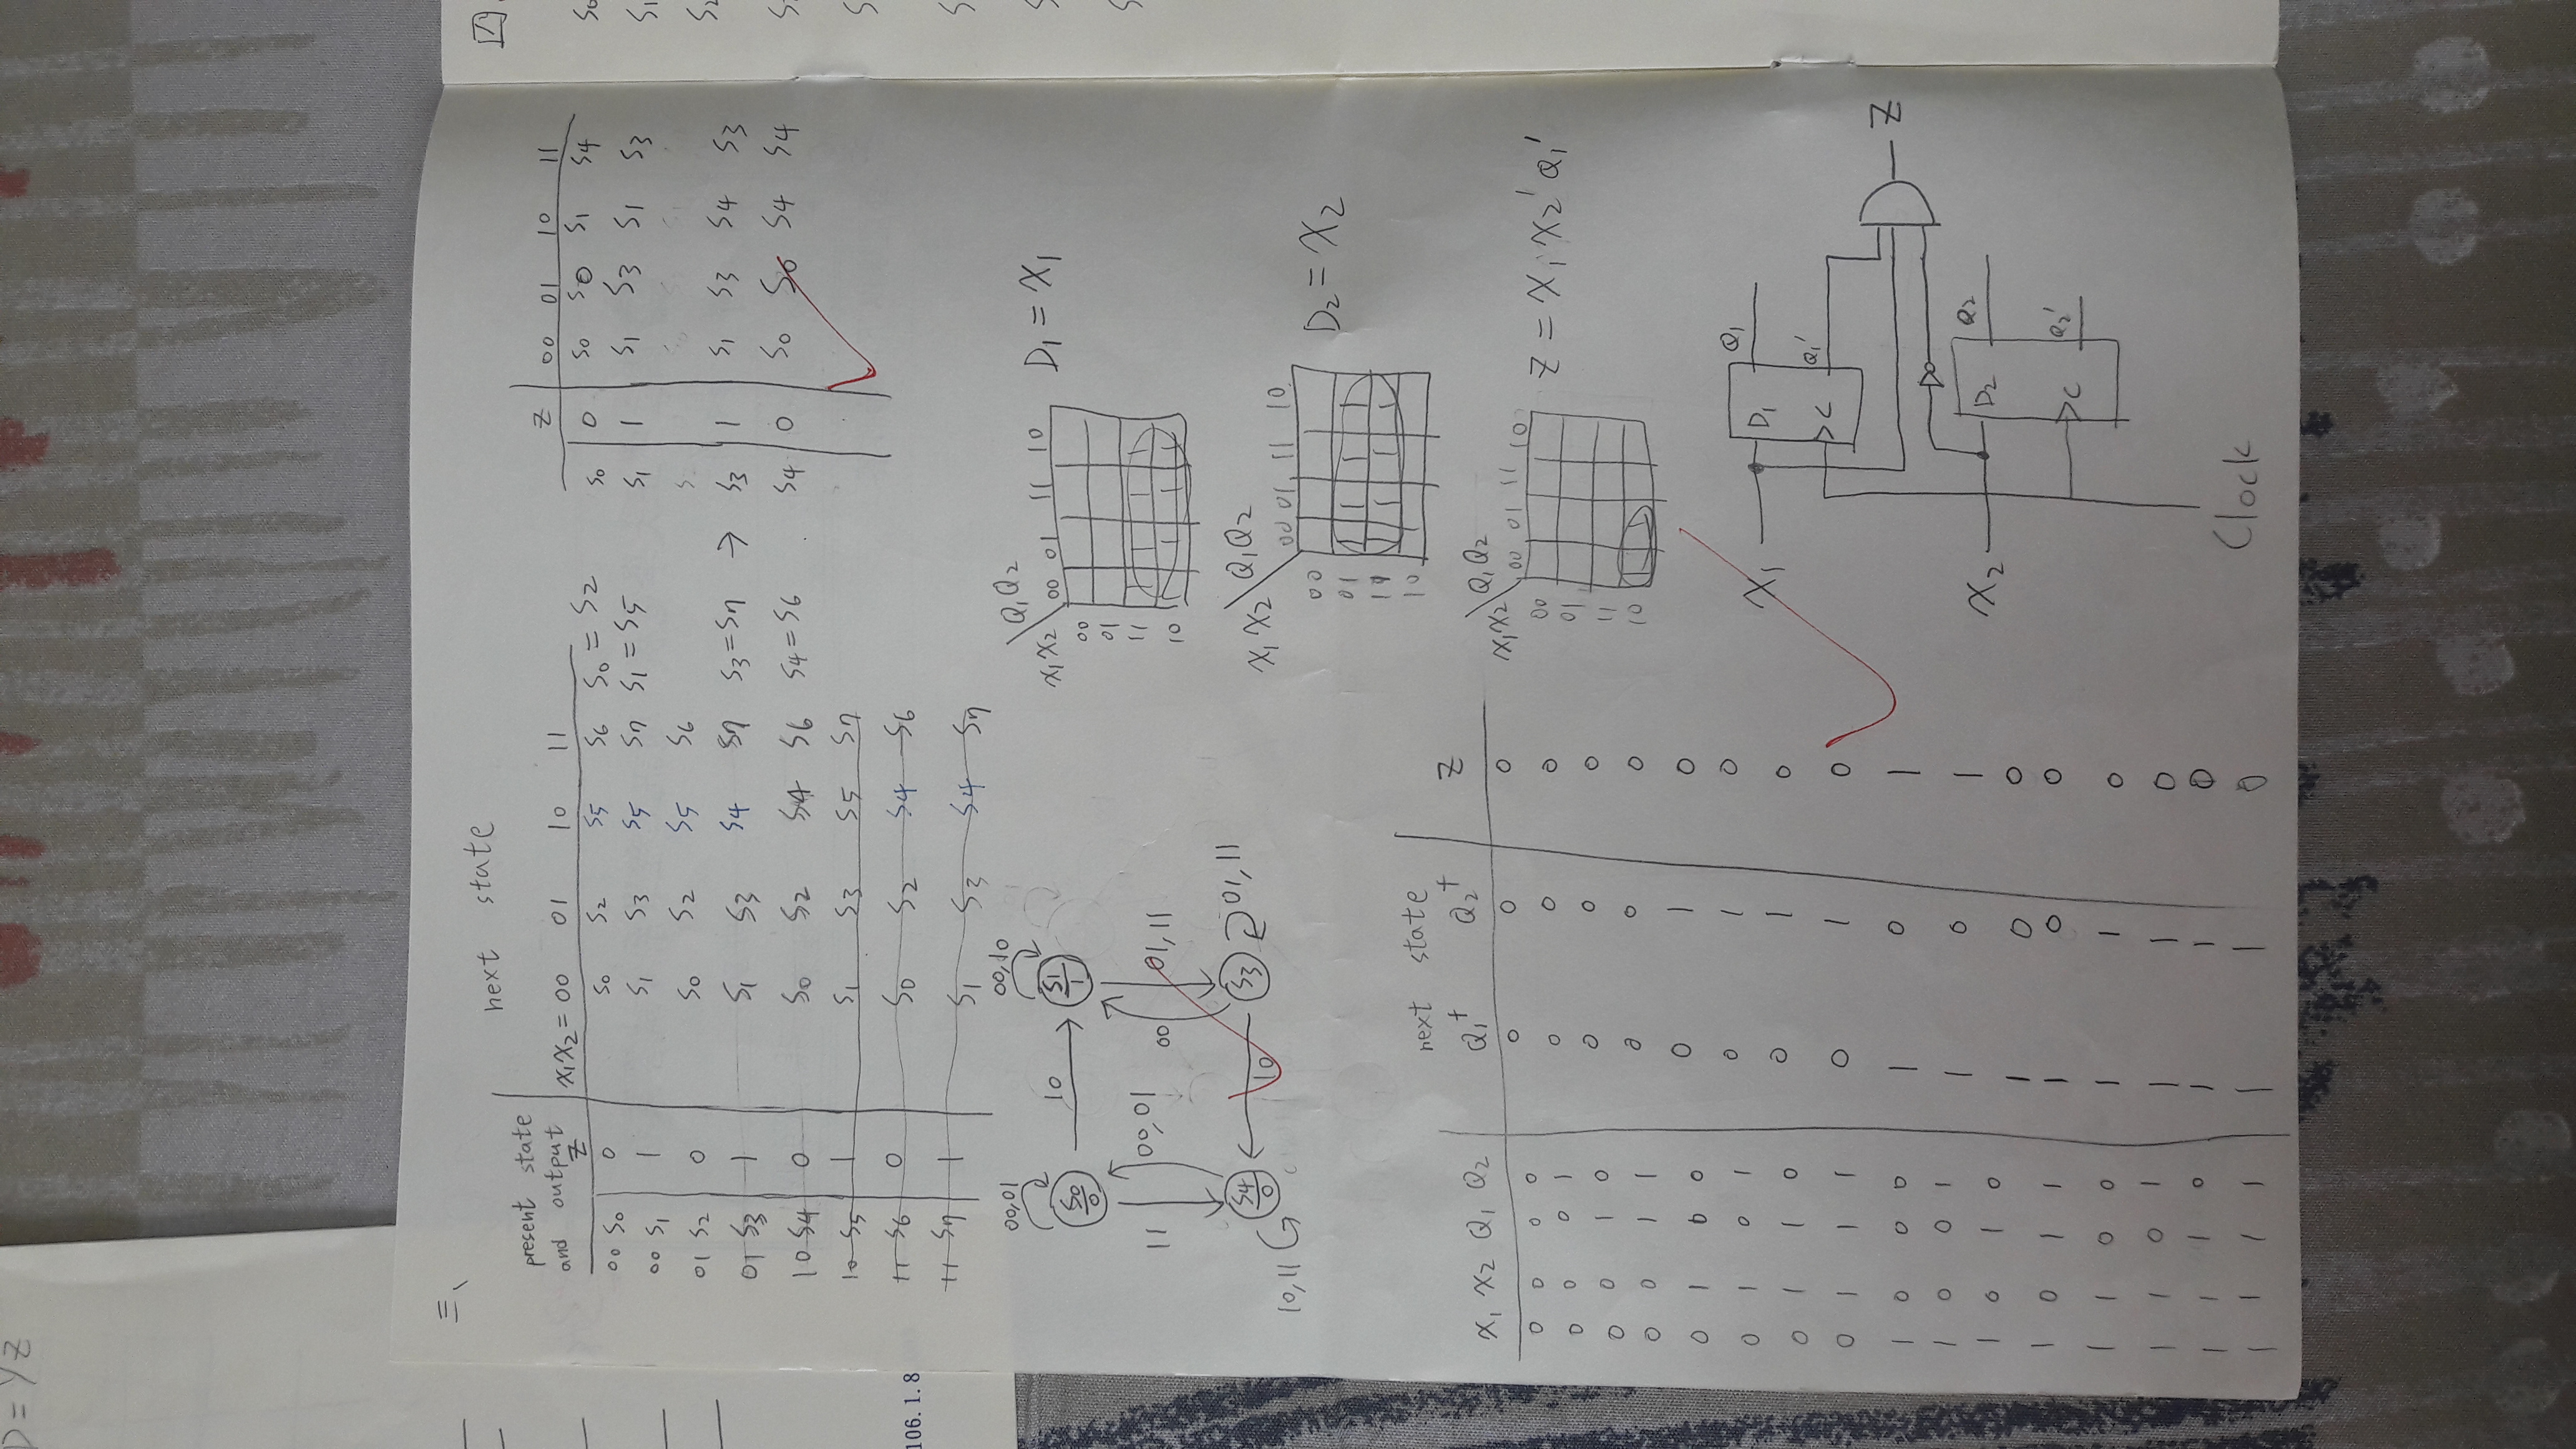 D = YZ
三、
next state
present state
and output
Z X₁X₂ = 00 01 10 11
00 S0 0 S0 S2 S5 S6 S0 = S2
00 S1 1 S1 S3 S5 S7 S1 = S5
01 S2 0 S0 S2 S5 S6
01 S3 1 S1 S3 S4 S7 S3 = S7 →
10 S4 0 S0 S2 S4 S6 S4 = S6
10 S5 1 S1 S3 S5 S7
11 S6 0 S0 S2 S4 S6
11 S7 1 S1 S3 S4 S7
Z 00 01 10 11
S0 0 S0 S0 S1 S4
S1 1 S1 S3 S1 S3
S3 1 S1 S3 S4 S3
S4 0 S0 S0 S4 S4
四
106.1.8
00,01
S0
0
10
00,10
S1
1
11
00,01
00
01,11
S4
0
10,11
10
S3
01,11
Q₁Q₂
X₁X₂ 00 01 11 10
00
01
11 1 1 1
10 1 1 1 1
D₁ = X₁
X₁X₂ Q₁Q₂
00 01 11 10
00
01 1 1 1 1
11 1 1 1 1
10
D₂ = X₂
X₁X₂ Q₁Q₂
00 01 11 10
00
01
11
10 1 1
Z = X₁X₂'Q₁'
next state
X₁ X₂ Q₁ Q₂ Q₁⁺ Q₂⁺ Z
0 0 0 0 0 0 0
0 0 0 1 0 0 0
0 0 1 0 0 0 0
0 0 1 1 0 0 0
0 1 0 0 0 1 0
0 1 0 1 0 1 0
0 1 1 0 0 1 0
0 1 1 1 0 1 0
1 0 0 0 1 0 1
1 0 0 1 1 0 1
1 0 1 0 1 0 0
1 0 1 1 1 0 0
1 1 0 0 1 1 0
1 1 0 1 1 1 0
1 1 1 0 1 1 0
1 1 1 1 1 1 0
X₁ D₁ Q₁
C Q₁'
Z
X₂ D₂ Q₂
C Q₂'
Clock